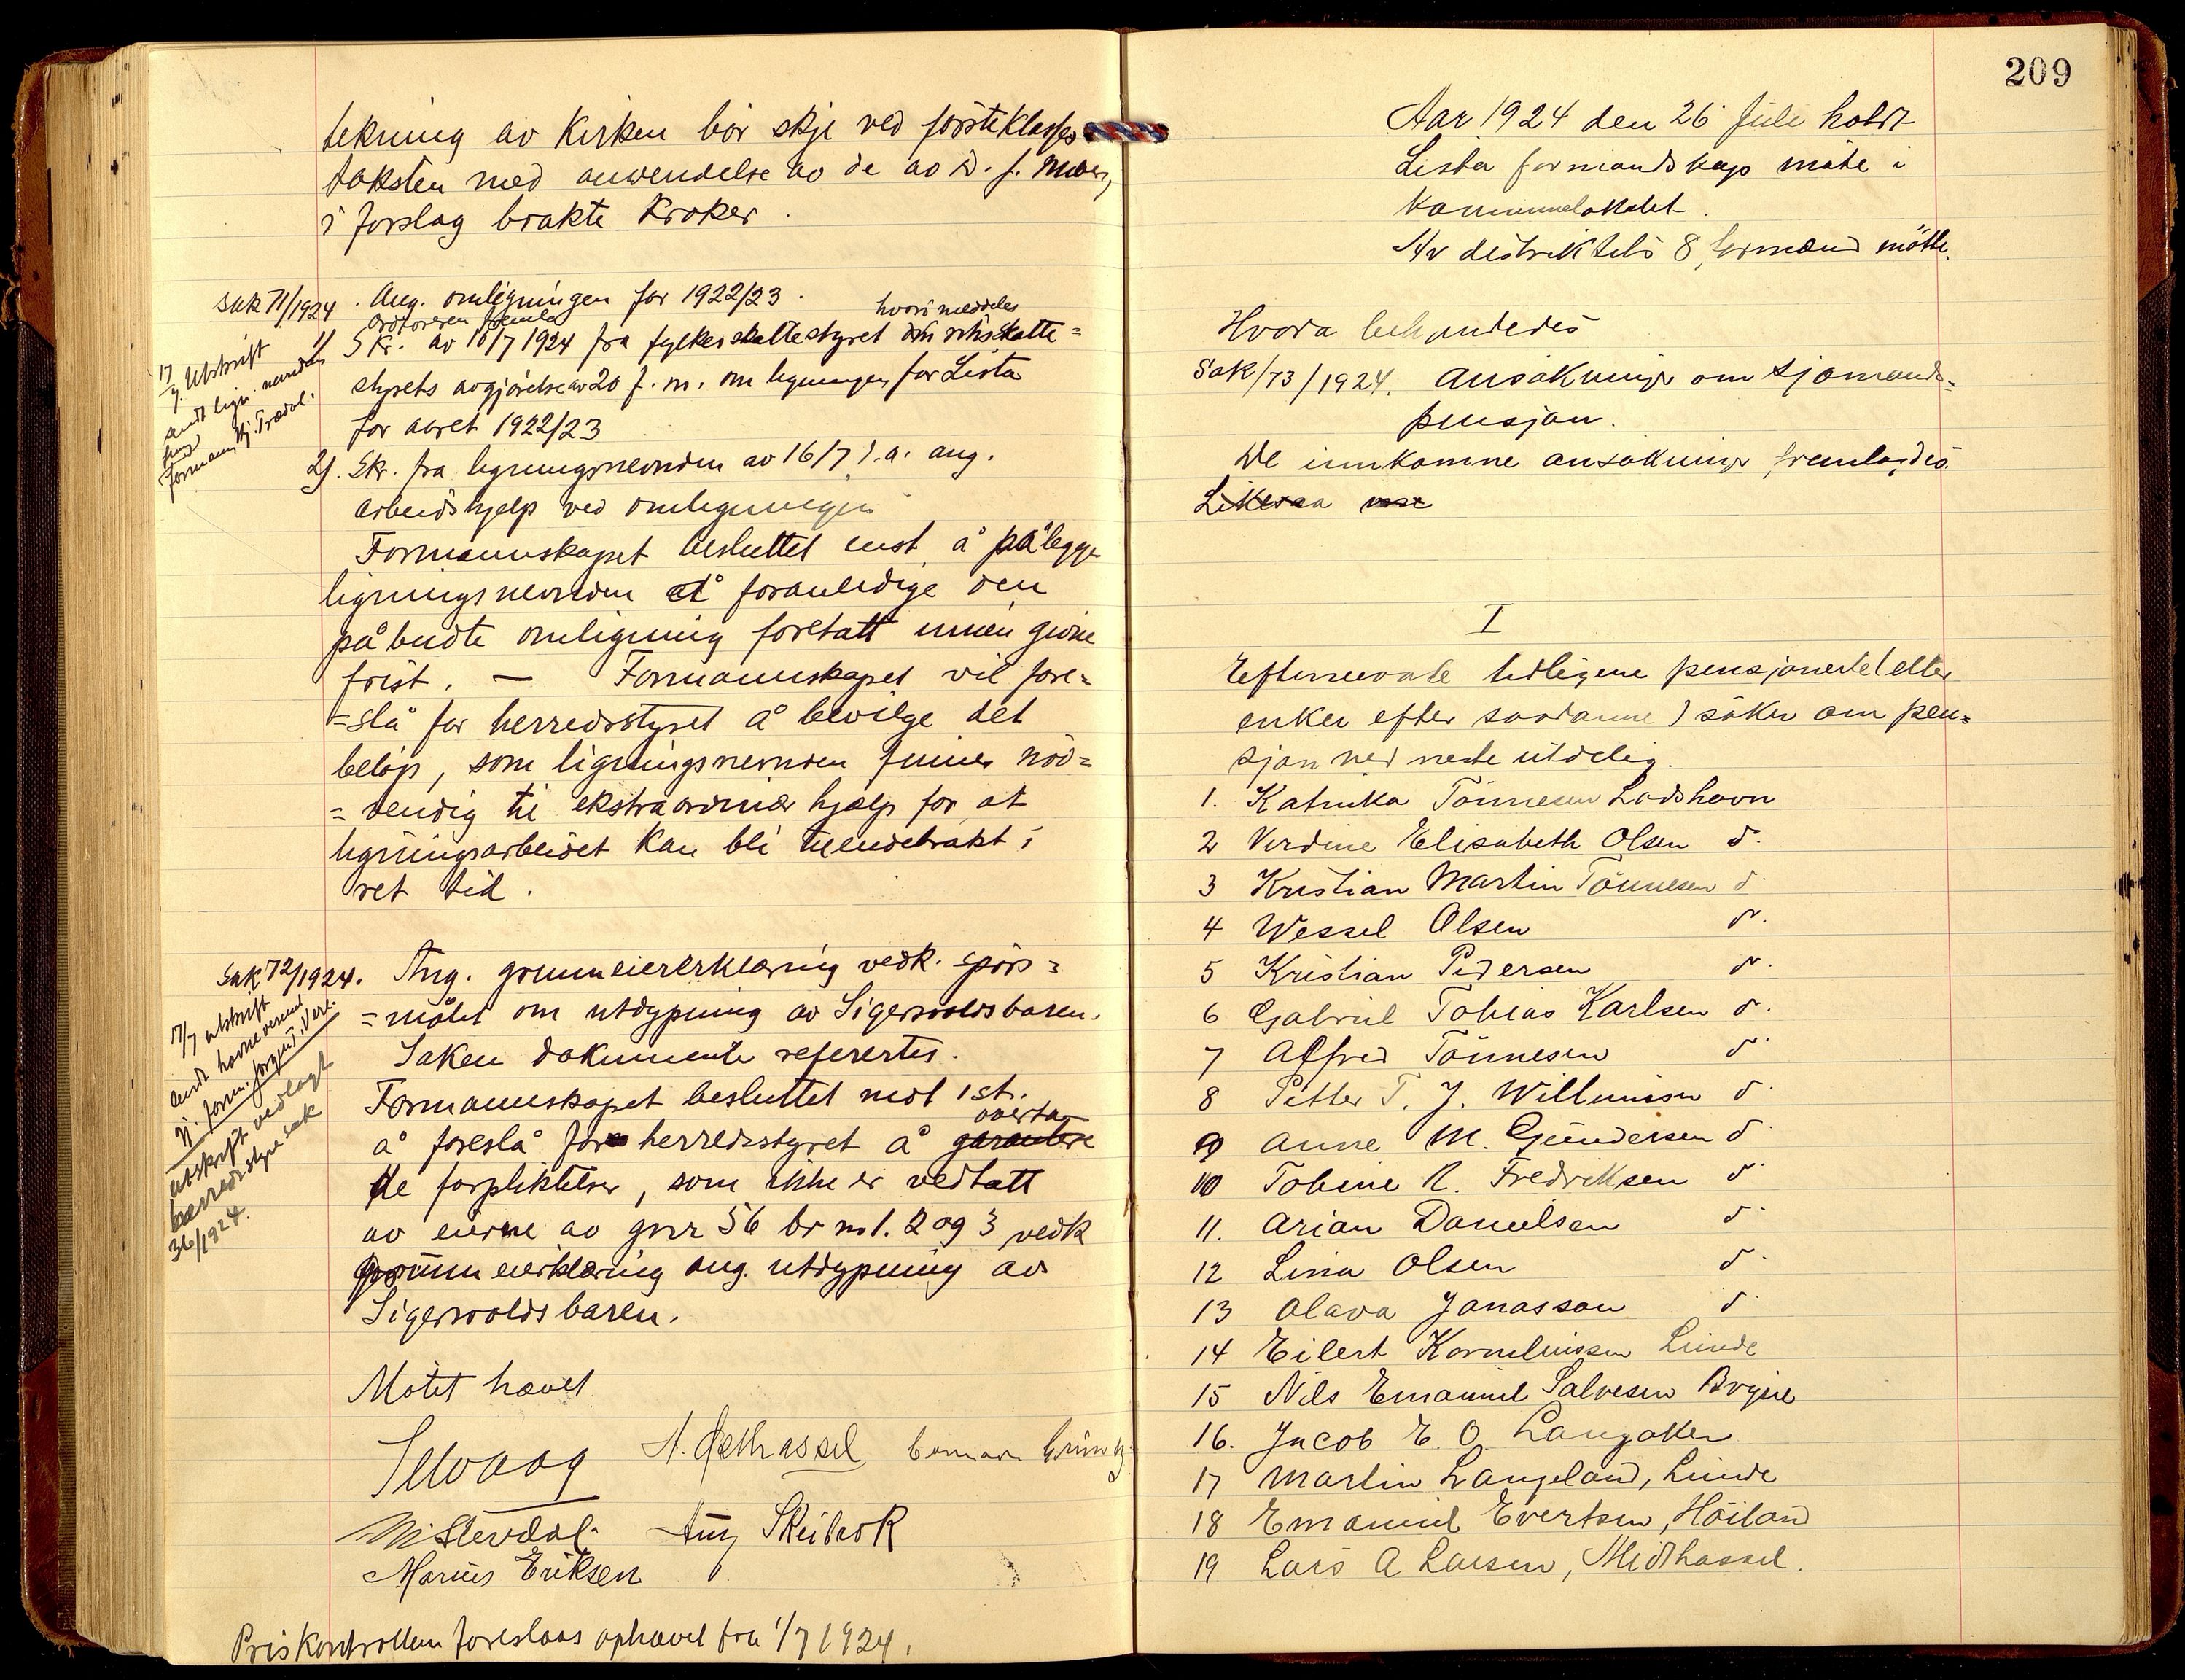 tekning av Kirken bör skje ved försteklasses
taksten med anvendelse av de av D. f.
i forslag brakte Kroker.
Sak 71/1924. Ang. omligningen for 1922/23.
Ordföreren fremla
hvori meddeles
1/ Skr. av 16/7 1924 fra fylkesskattestyret riksskatte=
styrets avgjörelse av 20 f. m. om ligningen for Lista
for aaret 1922/23
2/. Skr. fra ligningsnevnden av 16/7 d.a. ang.
arbeidshjelp ved omligningen
17/7 Utskrift
sendt lign. nevnden
ved
formann Hj. Trædal.
Formannskapet besluttet enst. å pålegge
ligningsnevnden å foranledige den
påbudte omligning foretatt innen givne
frist. — Formannskapet vil fore=
=slå for herredsstyret å bevilge det
belöp, som ligningsnevnden finner nöd=
=vendig til ekstraordinær hjelp for at
ligningsarbeidet kan bli tilendebrakt i
ret tid.
Sak 72/1924. Ang. grunneiererklæring vedk. spörs=
=målet om utdypning av Sigersvoldsbaren.
Saken dokumenter refertes.
17/7 utskrift
sendt havnevesenet
v. form. Jörgens. Vere.
utskrift vedlagt
herredsstyre sak
36/1924.
Formannskapet besluttet mot 1 st.
overta
å foreslå for herredsstyret å garantere
de forpliktelser, som ikke er vedtatt
av eierne av gnr 56 br no 1. 2 og 3 vedk
grunneierklæring ang. utdypning av
Sigersvoldsbaren.
Mötet hævet
Selvaag A. Østhassel
Stevdal Aug Skeibrok
Marius Eriksen
Priskontrollen foreslaas ophævet fra 1/7 1924.
209
Aar 1924 den 26 Juli holdt
Lista formandskap möte i
Kommunelokalet.
Av distriktets 8 formænd mötte.
Hvorda behandledes
Sak/73/1924. Ansökninger om sjömands=
pensjon.
De innkomne ansökninger fremlagdes.
Likesaa
I
Efternevnte tidligere pensjonerte (eller
enker efter saadanne) söker om pen=
sjon ved neste utdeling.
1. Katrinka Tönnesen Ladshavn
2 Verdine Elisabeth Olsen do.
3 Kristian Martin Tönnesen do.
4 Wessel Olsen do.
5 Kristian Pedersen do.
6 Gabriel Tobias Karlsen do.
7 Alfred Tönnesen do.
8 Petter T. J. Willumsen do.
9 Anne M. Gundersen do.
10 Tobine R. Fredriksen do.
11. Arian Danielsen do.
12 Lina Olsen do.
13 Olava Jonassen do.
14 Eilert Korneliussen Lunde
15 Nils Emanuel Salvesen Brgne
16. Jacob E. O. Langaker
17 Martin Langeland, Lunde
18 Emanuel Evertsen, Höiland
19 Lars A Larsen, Midthassel.